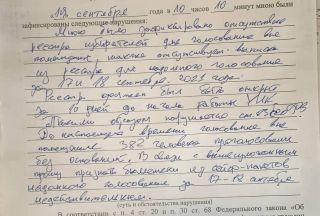 "19" сентября года в 10 часов 10 минут мною были
зафиксированы следующие нарушения:
Мною было зафиксировано отсутствие
реестра избирателей для голосования вне
помещения, также отсутствует выписка
из реестра для надомного голосования
за 17 и 18 сентября 2021 года.
Реестр должен был быть открыт
за 10 дней до начала работы УИК
Таким образом нарушается
До настоящего времени голосование вне
помещения 382 человека проголосовали
без основания. В связи с вышеизложенным
прошу признать бюллетени из сейф-пакетов
надомного голосования за 17-18 октября
недействительными.
(суть и обстоятельства нарушения)
В соответствии с п. 4 ст. 20 и п. 30 ст. 68 Федерального закона "Об